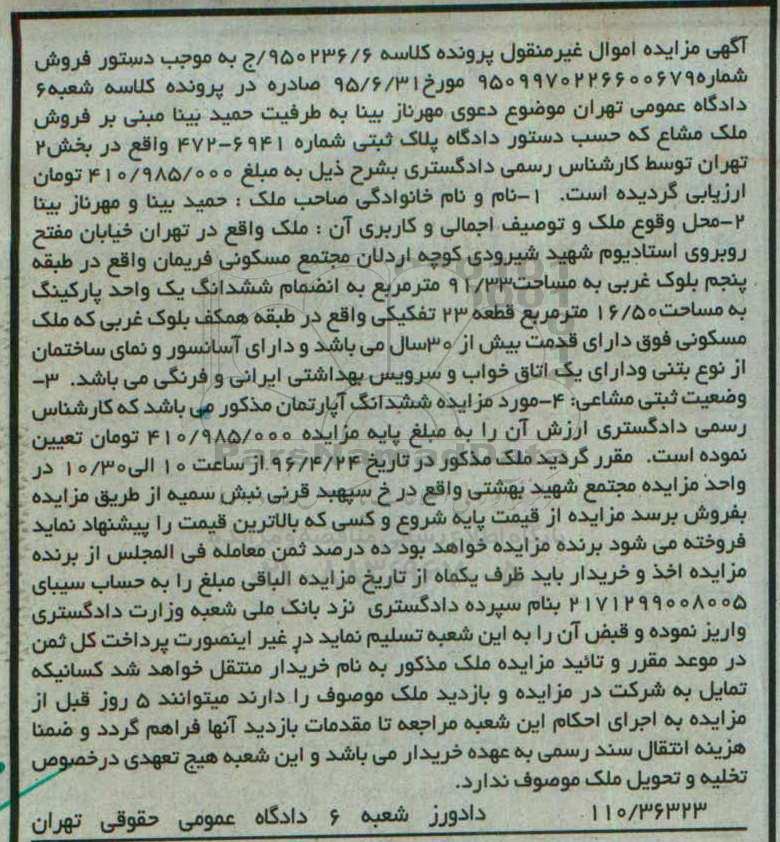 آگهی مزایده اموال غیرمنقول پرونده کلاسه ۹۵۰۲۳۶/۶/ج به موجب دستور فروش
شماره۹۵۰۹۹۷۰۲۲۶۶۰۰۶۷۹ مورخ۹۵/۶/۳۱ صادره در پرونده کلاسه شعبه۶
دادگاه عمومی تهران موضوع دعوی مهرناز بینا به طرفیت حمید بینا مبنی بر فروش
ملک مشاع که حسب دستور دادگاه پلاک ثبتی شماره ۶۹۴۱-۴۷۲ واقع در بخش۲
تهران توسط کارشناس رسمی دادگستری بشرح ذیل به مبلغ ۴۱۰/۹۸۵/۰۰۰ تومان
ارزیابی گردیده است. ۱-نام و نام خانوادگی صاحب ملک : حمید بینا و مهرناز بینا
۲-محل وقوع ملک و توصیف اجمالی و کاربری آن : ملک واقع در تهران خیابان مفتح
روبروی استادیوم شهید شیرودی کوچه اردلان مجتمع مسکونی فریمان واقع در طبقه
پنجم بلوک غربی به مساحت۹۱/۳۳ مترمربع به انضمام ششدانگ یک واحد پارکینگ
به مساحت۱۶/۵۰ مترمربع قطعه ۲۳ تفکیکی واقع در طبقه همکف بلوک غربی که ملک
مسکونی فوق دارای قدمت بیش از ۳۰سال می باشد و دارای آسانسور و نمای ساختمان
از نوع بتنی ودارای یک اتاق خواب و سرویس بهداشتی ایرانی و فرنگی می باشد. ۳-
وضعیت ثبتی مشاعی: ۴-مورد مزایده ششدانگ آپارتمان مذکور می باشد که کارشناس
رسمی دادگستری ارزش آن را به مبلغ پایه مزایده ۴۱۰/۹۸۵/۰۰۰ تومان تعیین
نموده است. مقرر گردید ملک مذکور در تاریخ ۹۶/۴/۲۴ از ساعت ۱۰ الی۱۰/۳۰ در
واحد مزایده مجتمع شهید بهشتی واقع در خ سپهبد قرنی نبش سمیه از طریق مزایده
بفروش برسد مزایده از قیمت پایه شروع و کسی که بالاترین قیمت را پیشنهاد نماید
فروخته می شود برنده مزایده خواهد بود ده درصد ثمن معامله فی المجلس از برنده
مزایده اخذ و خریدار باید ظرف یکماه از تاریخ مزایده الباقی مبلغ را به حساب سیبای
۲۱۷۱۲۹۹۰۰۸۰۰۵ بنام سپرده دادگستری نزد بانک ملی شعبه وزارت دادگستری
واریز نموده و قبض آن را به این شعبه تسلیم نماید در غیر اینصورت پرداخت کل ثمن
در موعد مقرر و تائید مزایده ملک مذکور به نام خریدار منتقل خواهد شد کسانیکه
تمایل به شرکت در مزایده و بازدید ملک موصوف را دارند میتوانند ۵ روز قبل از
مزایده به اجرای احکام این شعبه مراجعه تا مقدمات بازدید آنها فراهم گردد و ضمنا
هزینه انتقال سند رسمی به عهده خریدار می باشد و این شعبه هیچ تعهدی درخصوص
تخلیه و تحویل ملک موصوف ندارد.
۱۱۰/۳۶۳۲۳ دادورز شعبه ۶ دادگاه عمومی حقوقی تهران